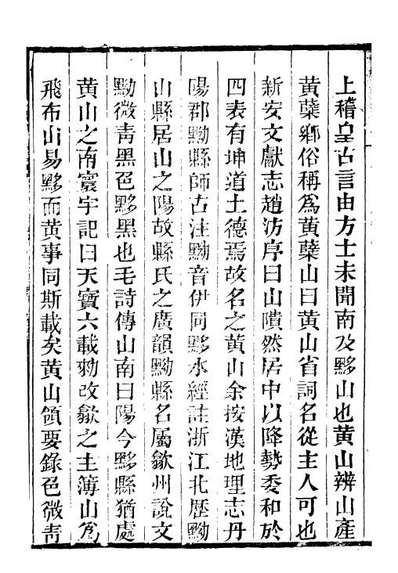 上稽皇古言由方士未開南及黟山也黃山辨山產
黃蘗鄉俗稱爲黃蘗山曰黃山省詞名從主人可也
新安文獻志趙汸序曰山隤然居中以降勢委和於
四表有坤道土德焉故名之黃山余按漢地理志丹
陽郡黝縣師古注黝音伊同黟水經註浙江北歷黝
山縣居山之陽故縣氏之廣韻黝縣名屬歙州說文
黝微靑黑色黟黑也毛詩傳山南曰陽今黟縣猶處
黃山之南寰宇記曰天寶六載勑改歙之主簿山爲
飛布山易黟而黃事同斯載矣黃山領要錄色微靑